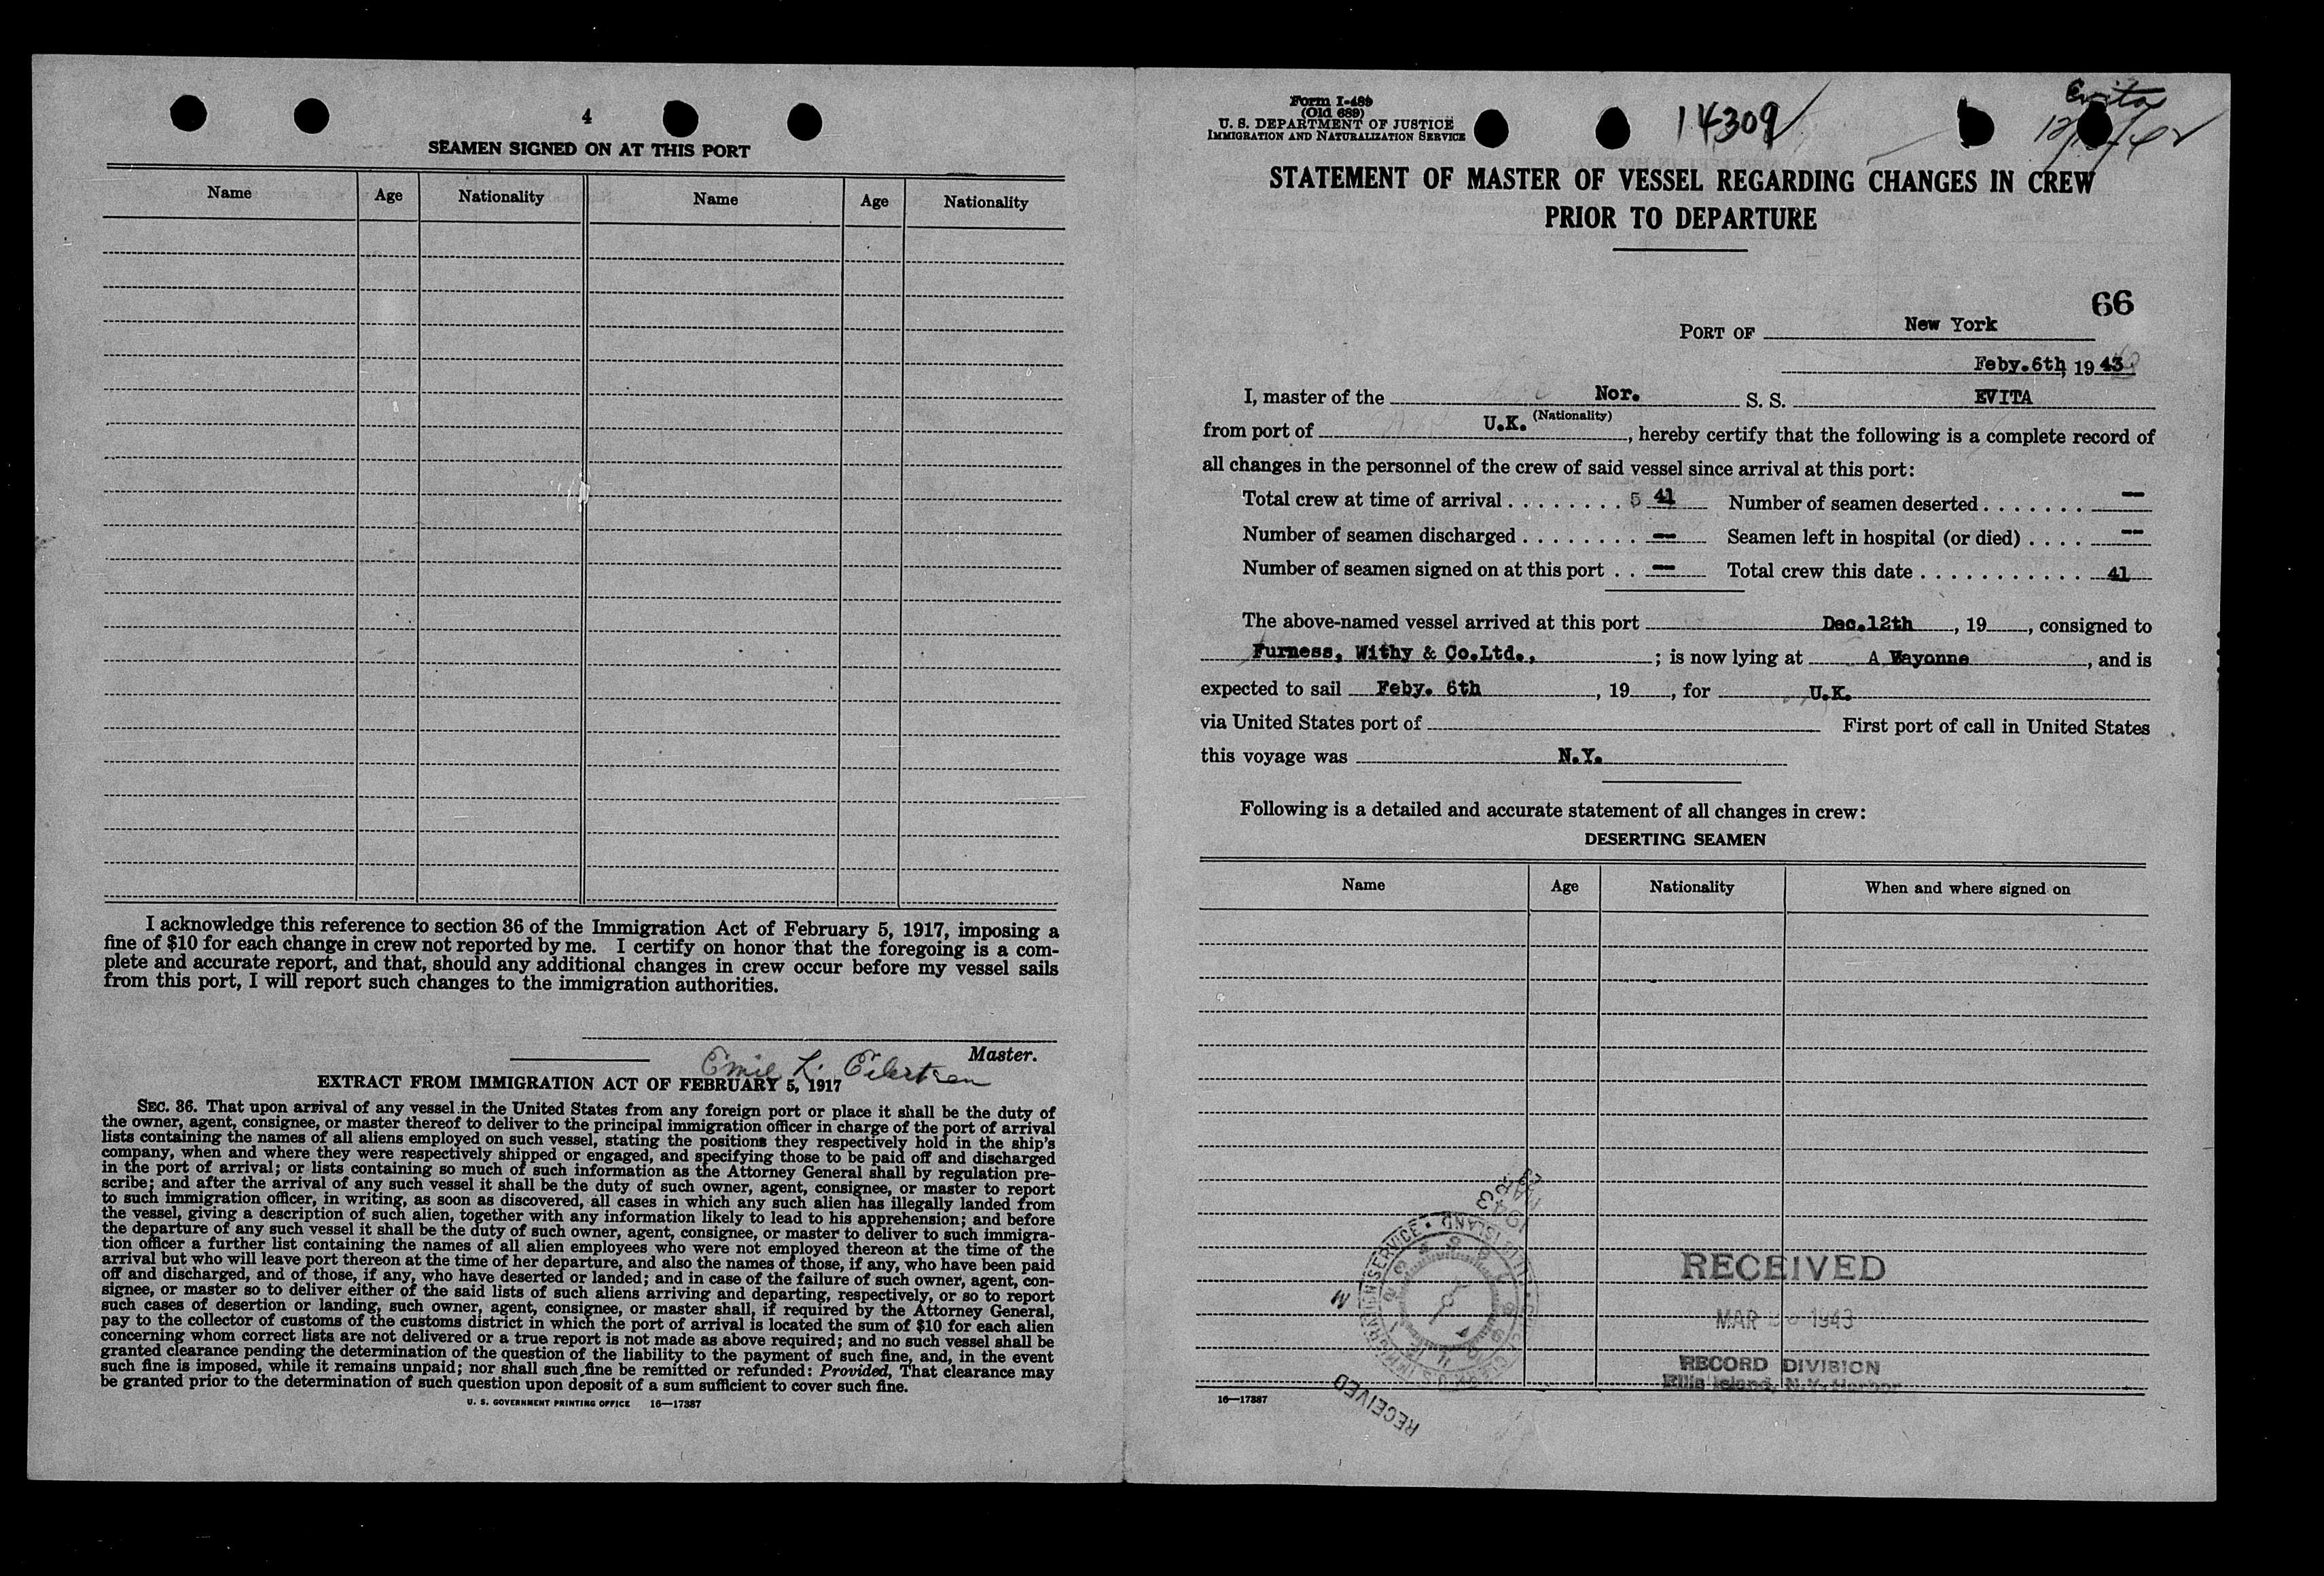 4
SEAMEN SIGNED ON AT THIS PORT
Name Age Nationality Name Age Nationality
I acknowledge this reference to section 36 of the Immigration Act of February 5, 1917, imposing a
fine of $10 for each change in crew not reported by me. I certify on honor that the foregoing is a com-
plete and accurate report, and that, should any additional changes in crew occur before my vessel sails
from this port, I will report such changes to the immigration authorities.
Master.
Emil L. Eilertsen
EXTRACT FROM IMMIGRATION ACT OF FEBRUARY 5, 1917
SEC. 36. That upon arrival of any vessel in the United States from any foreign port or place it shall be the duty of
the owner, agent, consignee, or master thereof to deliver to the principal immigration officer in charge of the port of arrival
lists containing the names of all aliens employed on such vessel, stating the positions they respectively hold in the ship's
company, when and where they were respectively shipped or engaged, and specifying those to be paid off and discharged
in the port of arrival; or lists containing so much of such information as the Attorney General shall by regulation pre-
scribe; and after the arrival of any such vessel it shall be the duty of such owner, agent, consignee, or master to report
to such immigration officer, in writing, as soon as discovered, all cases in which any such alien has illegally landed from
the vessel, giving a description of such alien, together with any information likely to lead to his apprehension; and before
the departure of any such vessel it shall be the duty of such owner, agent, consignee, or master to deliver to such immigra-
tion officer a further list containing the names of all alien employees who were not employed thereon at the time of the
arrival but who will leave port thereon at the time of her departure, and also the names of those, if any, who have been paid
off and discharged, and of those, if any, who have deserted or landed; and in case of the failure of such owner, agent, con-
signee, or master so to deliver either of the said lists of such aliens arriving and departing, respectively, or so to report
such cases of desertion or landing, such owner, agent, consignee, or master shall, if required by the Attorney General,
pay to the collector of customs of the customs district in which the port of arrival is located the sum of $10 for each alien
concerning whom correct lists are not delivered or a true report is not made as above required; and no such vessel shall be
granted clearance pending the determination of the question of the liability to the payment of such fine, and, in the event
such fine is imposed, while it remains unpaid; nor shall such fine be remitted or refunded: Provided, That clearance may
be granted prior to the determination of such question upon deposit of a sum sufficient to cover such fine.
U. S. GOVERNMENT PRINTING OFFICE 16—17387
Form I-489
(Old 689)
U. S. DEPARTMENT OF JUSTICE
IMMIGRATION AND NATURALIZATION SERVICE
14309
Evita
STATEMENT OF MASTER OF VESSEL REGARDING CHANGES IN CREW
PRIOR TO DEPARTURE
66
PORT OF New York
Feby.6th, 1943
I, master of the Nor. S. S. EVITA
(Nationality)
from port of U.K., hereby certify that the following is a complete record of
all changes in the personnel of the crew of said vessel since arrival at this port:
Total crew at time of arrival . . . . . . . . 5 41 Number of seamen deserted . . . . . . . --
Number of seamen discharged . . . . . . . . -- Seamen left in hospital (or died) . . . . --
Number of seamen signed on at this port . . -- Total crew this date . . . . . . . . . . . . 41
The above-named vessel arrived at this port Dec.12th, 19, consigned to
Furness, Withy & Co.Ltd., ; is now lying at A Bayonne, and is
expected to sail Feby. 6th, 19, for U.K.
via United States port of First port of call in United States
this voyage was N.Y.
Following is a detailed and accurate statement of all changes in crew:
DESERTING SEAMEN
Name Age Nationality When and where signed on
1943
RECEIVED
MAR 1943
RECORD DIVISION
Ellis Island, N.Y. Harbor
RECEIVED
16—17387